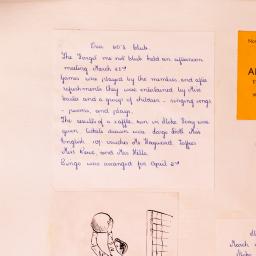 Over 60's Club.
The Forget me not Club held an afternoon
meeting March 23rd
Games were played by the members and after
refreshments they were entertained by Miss
and a group of children - singing songs
- poems, and plays.
The results of a raffle, run in Stoke Ferry were
given. Tickets drawn were large Doll Mrs
English 10/- voucher Mr Hayward
Miss Kowe, and Mrs Mills.
Bingo was arranged for April 2nd
No
A
March
Stoke